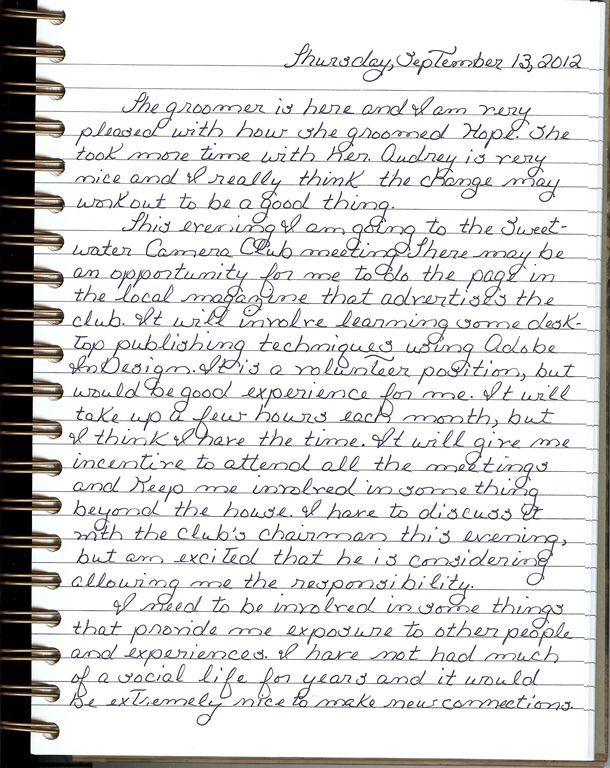 Thursday, September 13, 2012
The groomer is here and I am very
pleased with how she groomed Hope. She
took more time with her. Audrey is very
nice and I really think the change may
workout to be a good thing.
This evening I am going to the Sweet-
water Camera Club meeting. There may be
an opportunity for me to do the page in
the local magazine that advertises the
club. It will involve learning some desk-
top publishing techniques using Adobe
InDesign. It is a volunteer position, but
would be good experience for me. It will
take up a few hours each month, but
I think I have the time. It will give me
incentive to attend all the meetings
and keep me involved in something
beyond the house. I have to discuss it
with the club's chairman this evening,
but am excited that he is considering
allowing me the responsibility.
I need to be involved in some things
that provide me exposure to other people
and experiences. I have not had much
of a social life for years and it would
be extremely nice to make new connections.